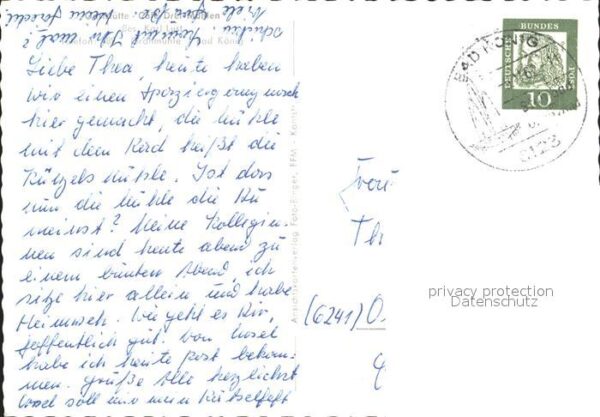 Liebe Thea, heute haben
wir einen Spaziergang nach
hier gemacht, die Mühle
mit dem Rad heißt die
Kützelsmühle. Ist das
nun die Mühle die Du
meinst? Meine Kollegin-
nen sind heute abend zu
einem bunten Abend, ich
sitze hier allein und habe
Heimweh. Wie geht es Dir,
hoffentlich gut. Von
habe ich heute Post bekom-
men. Grüße alle herzlichst
soll mir mein Rätselheft
schicken
viele
Bad König
Foto-Bürger, BFM - König
DEUTSCHE BUNDESPOST
10
BAD KÖNIG
6123
Frau
Th
(6241) O
privacy protection
Datenschutz